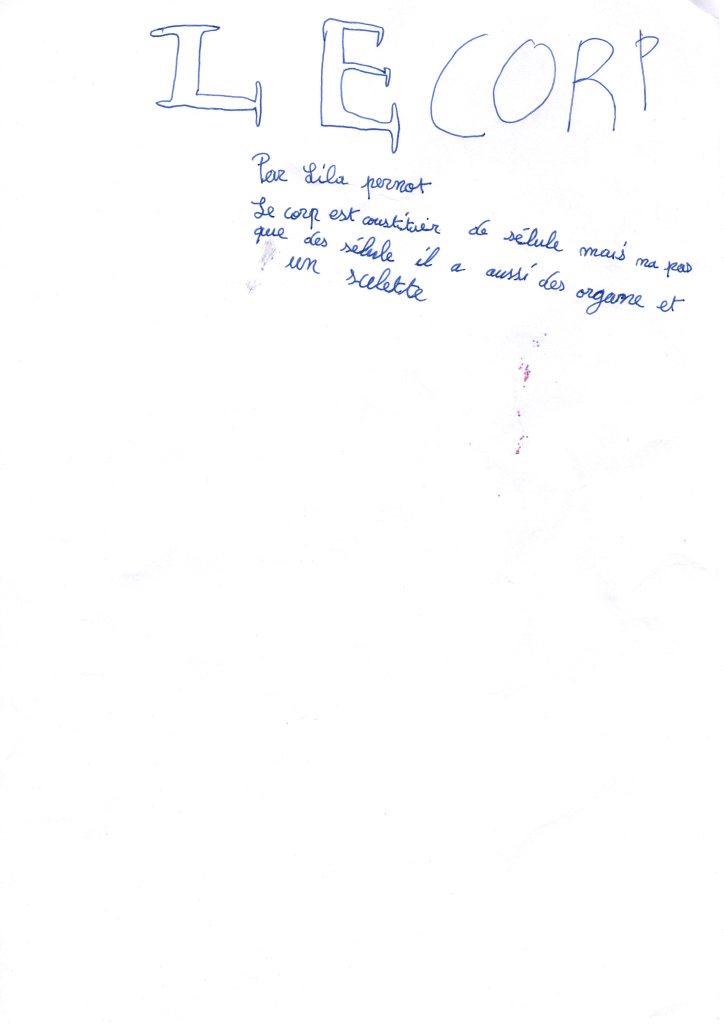 LE CORP
Par Lila pernot
Le corp est constituér de sélule mais na pas
que des sélule il a aussi des organe et
un scelette